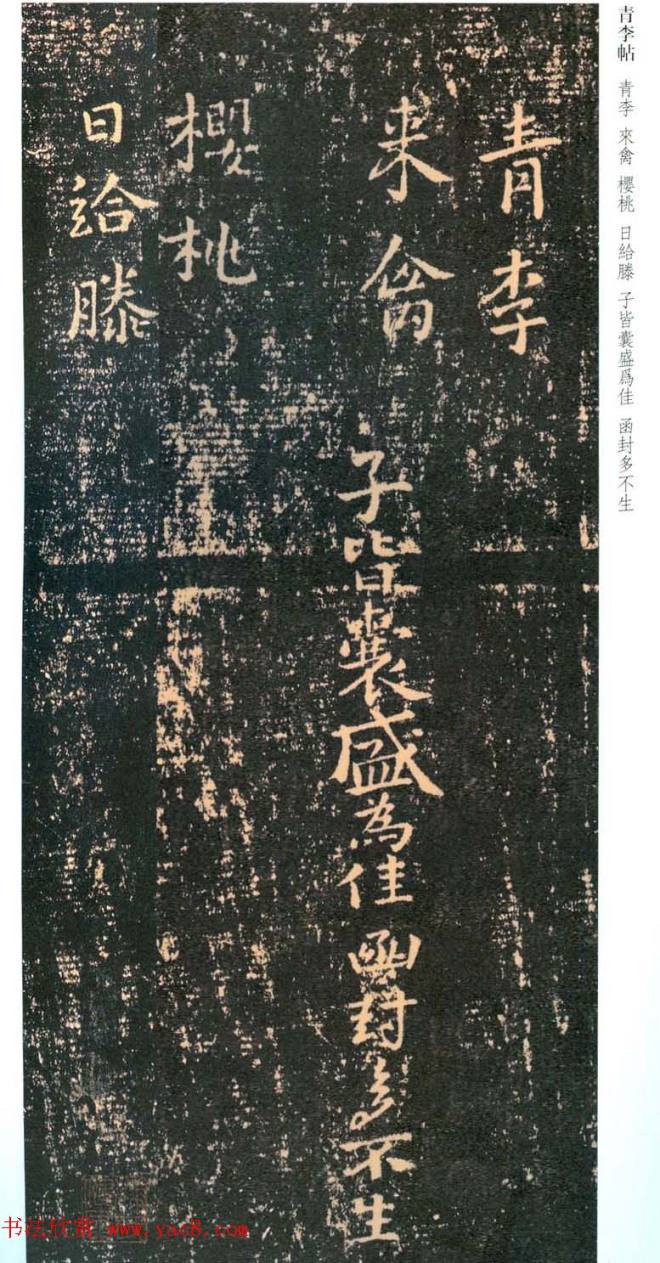 青李帖 青李 來禽 櫻桃 日給滕 子皆囊盛爲佳 函封多不生
青李
来禽
子皆囊盛為佳 函封多不生
櫻桃
日給滕
书法欣赏 www.yac8.com